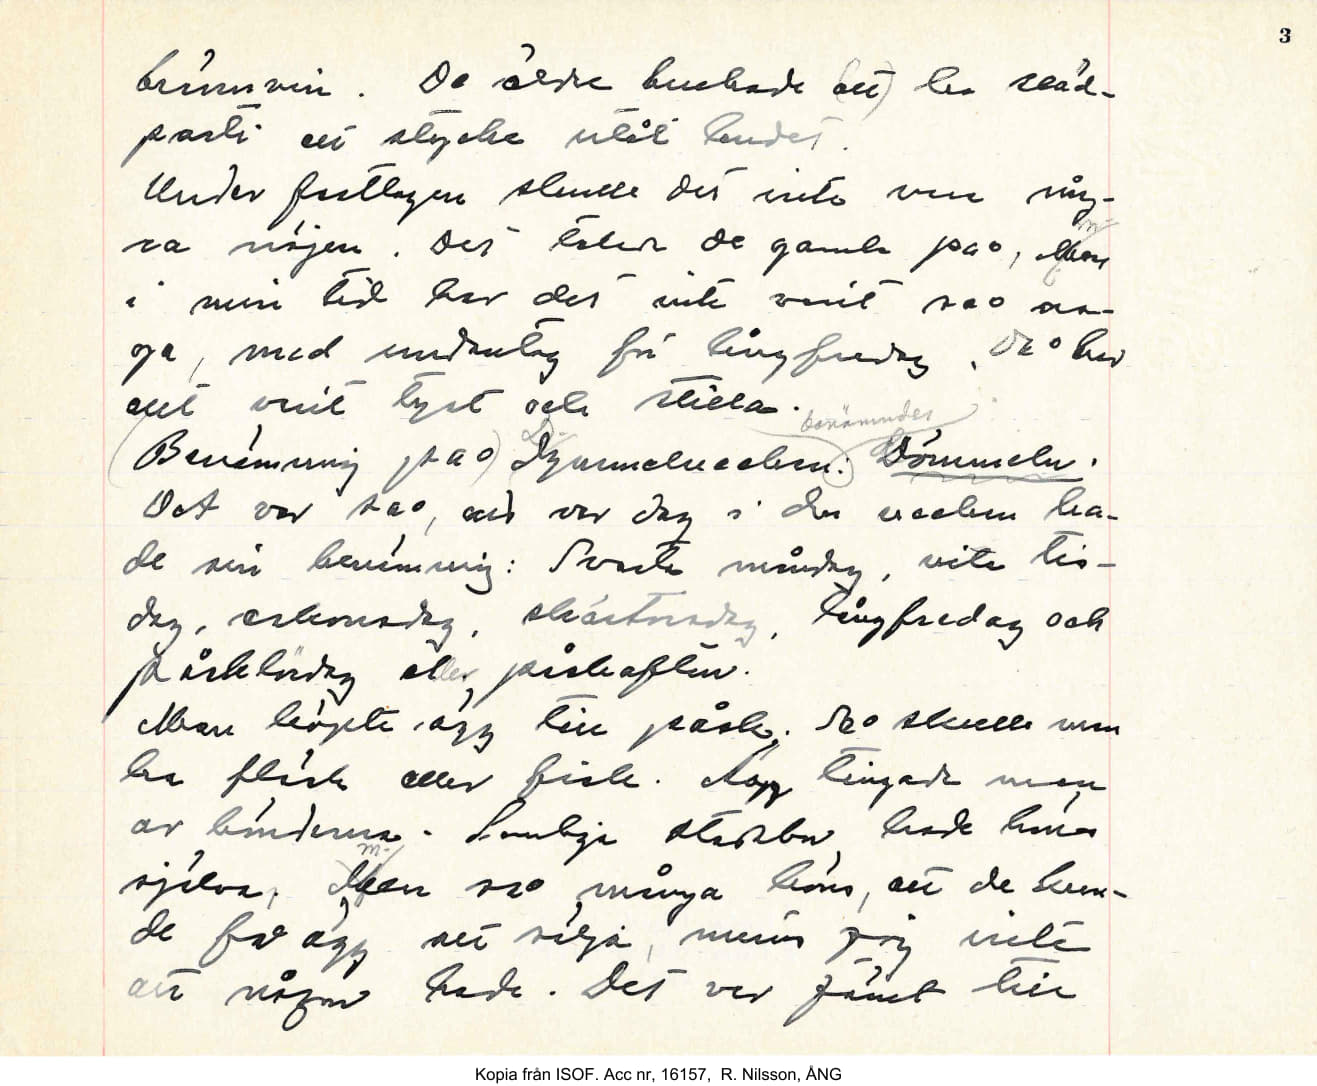 3
brännvin. De äldre brukade (att) ha släd-
parti ett stycke utåt landet.
Under fastlagen skulle det inte vara någ-
ra nöjen. Det talar de gamla på, men
i min tid har det inte varit så no-
ga, med undantag för långfredag. Då har
allt varit tyst och stilla.
benämndes
(Benämning på) Dymmelveckan: Dömmeln.
Det var så, att var dag i den veckan ha-
de sin benämning: Svarta måndag, vita tis-
dag, askonsdag, skärtorsdag, långfredag och
påsklördag eller påskafton.
Man köpte ägg till påsk. Så skulle man
ha fläsk eller fisk. Ägg tingade man
av bönderna. Somliga stadsbor hade höns
själva, men så många höns, att de kun-
de få ägg att sälja, minns jag inte
att någon hade. Det var jämt till
Kopia från ISOF. Acc nr, 16157, R. Nilsson, ÅNG